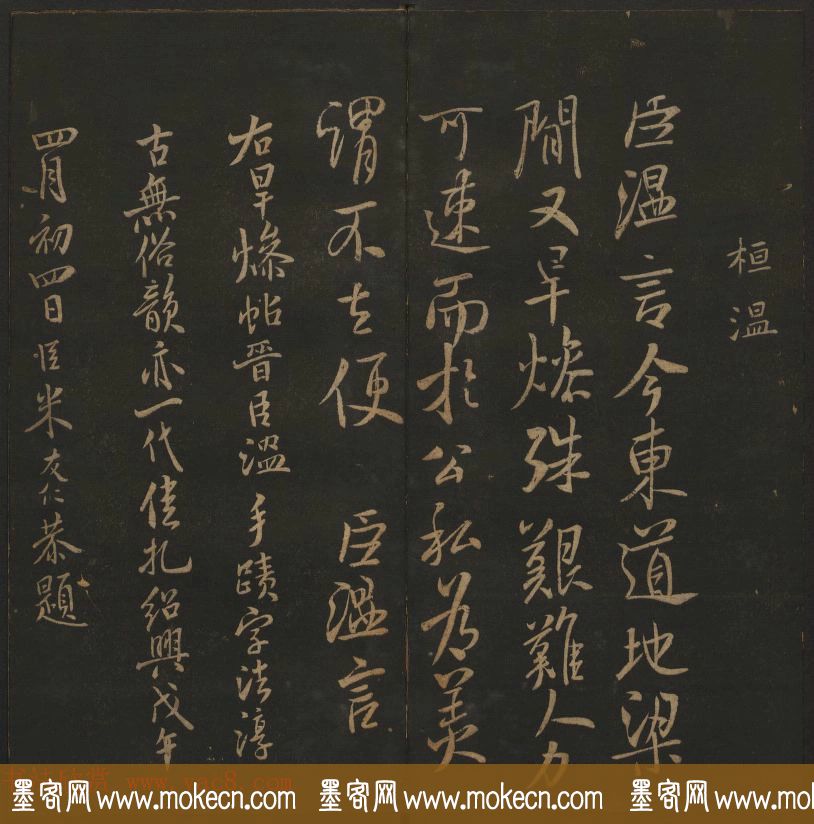 桓温
臣温言今東道地梁
間又旱燥殊艱難人力
可速而於公私為美
謂不去便 臣温言
右旱燥帖晉臣温手蹟字法淳
古無俗韻亦一代佳札紹興戊午
四月初四日臣米友仁恭題
書法欣賞 www.yac8.com
墨客网 www.mokecn.com 墨客网 www.mokecn.com 墨客网 www.mokecn.com